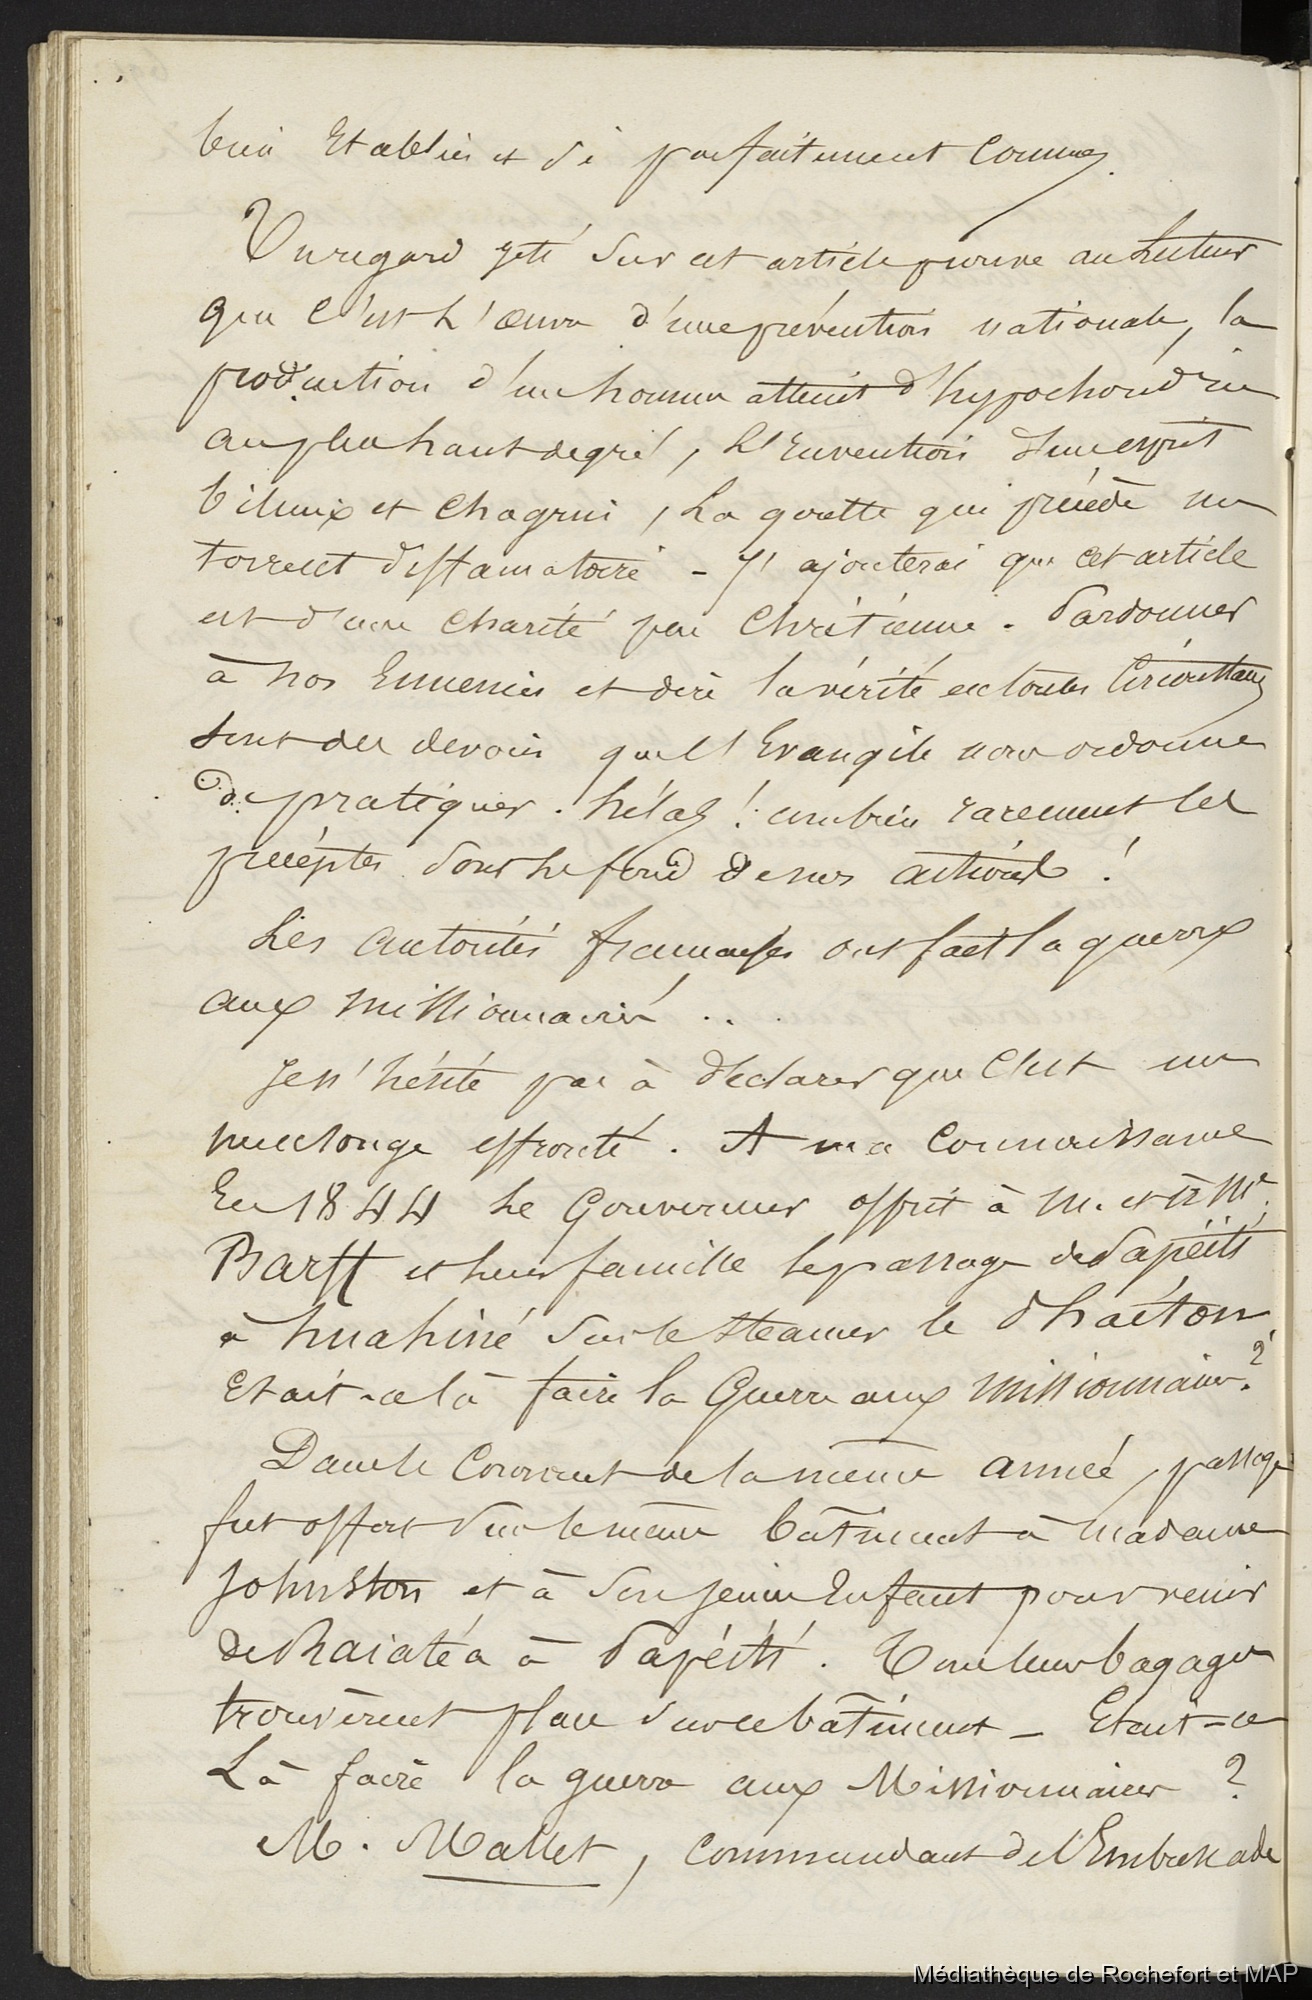 bien Etablies et si parfaitement Connues.
Un regard jeté sur cet article prouve au Lecteur
que c'est L'œuvre d'une prévention nationale, la
production d'un homme atteint d'hypochondrie
au plus haut degré, L'Invention d'un esprit
bilieux et Chagrin, La goutte qui précède un
torrent diffamatoire - J'ajouterai que cet article
est d'une Charité peu Chrétienne. Pardonner
à nos Ennemis et dire la vérité en toutes Circonstances
sont des devoirs que l'Evangile nous ordonne
de pratiquer. hélas ! combien rarement les
préceptes sont le fond de nos actions !
Les autorités françaises ont fait la guerre
aux missionnaires ...
Je n'hésite pas à déclarer que C'est un
mensonge effronté. A ma Connaissance
En 1844 Le Gouverneur offrit à M. et à Me.
Barff et leur famille le passage de Papéiti
à huahiné sur le Steamer le Phaéton
Etait-ce là faire la Guerre aux missionnaires ?
Dans le Courant de la même année, passage
fut offert sur le même bâtiment à Madame
Johnston et à son jeune Enfant pour venir
de Raiatéa à Papéiti. Tous leurs bagages
trouvèrent place sur ce bâtiment - Etait-ce
Là faire la guerre aux Missionnaires ?
M. Mallet, Commandant de l'Embuscade
Médiathèque de Rochefort et MAP